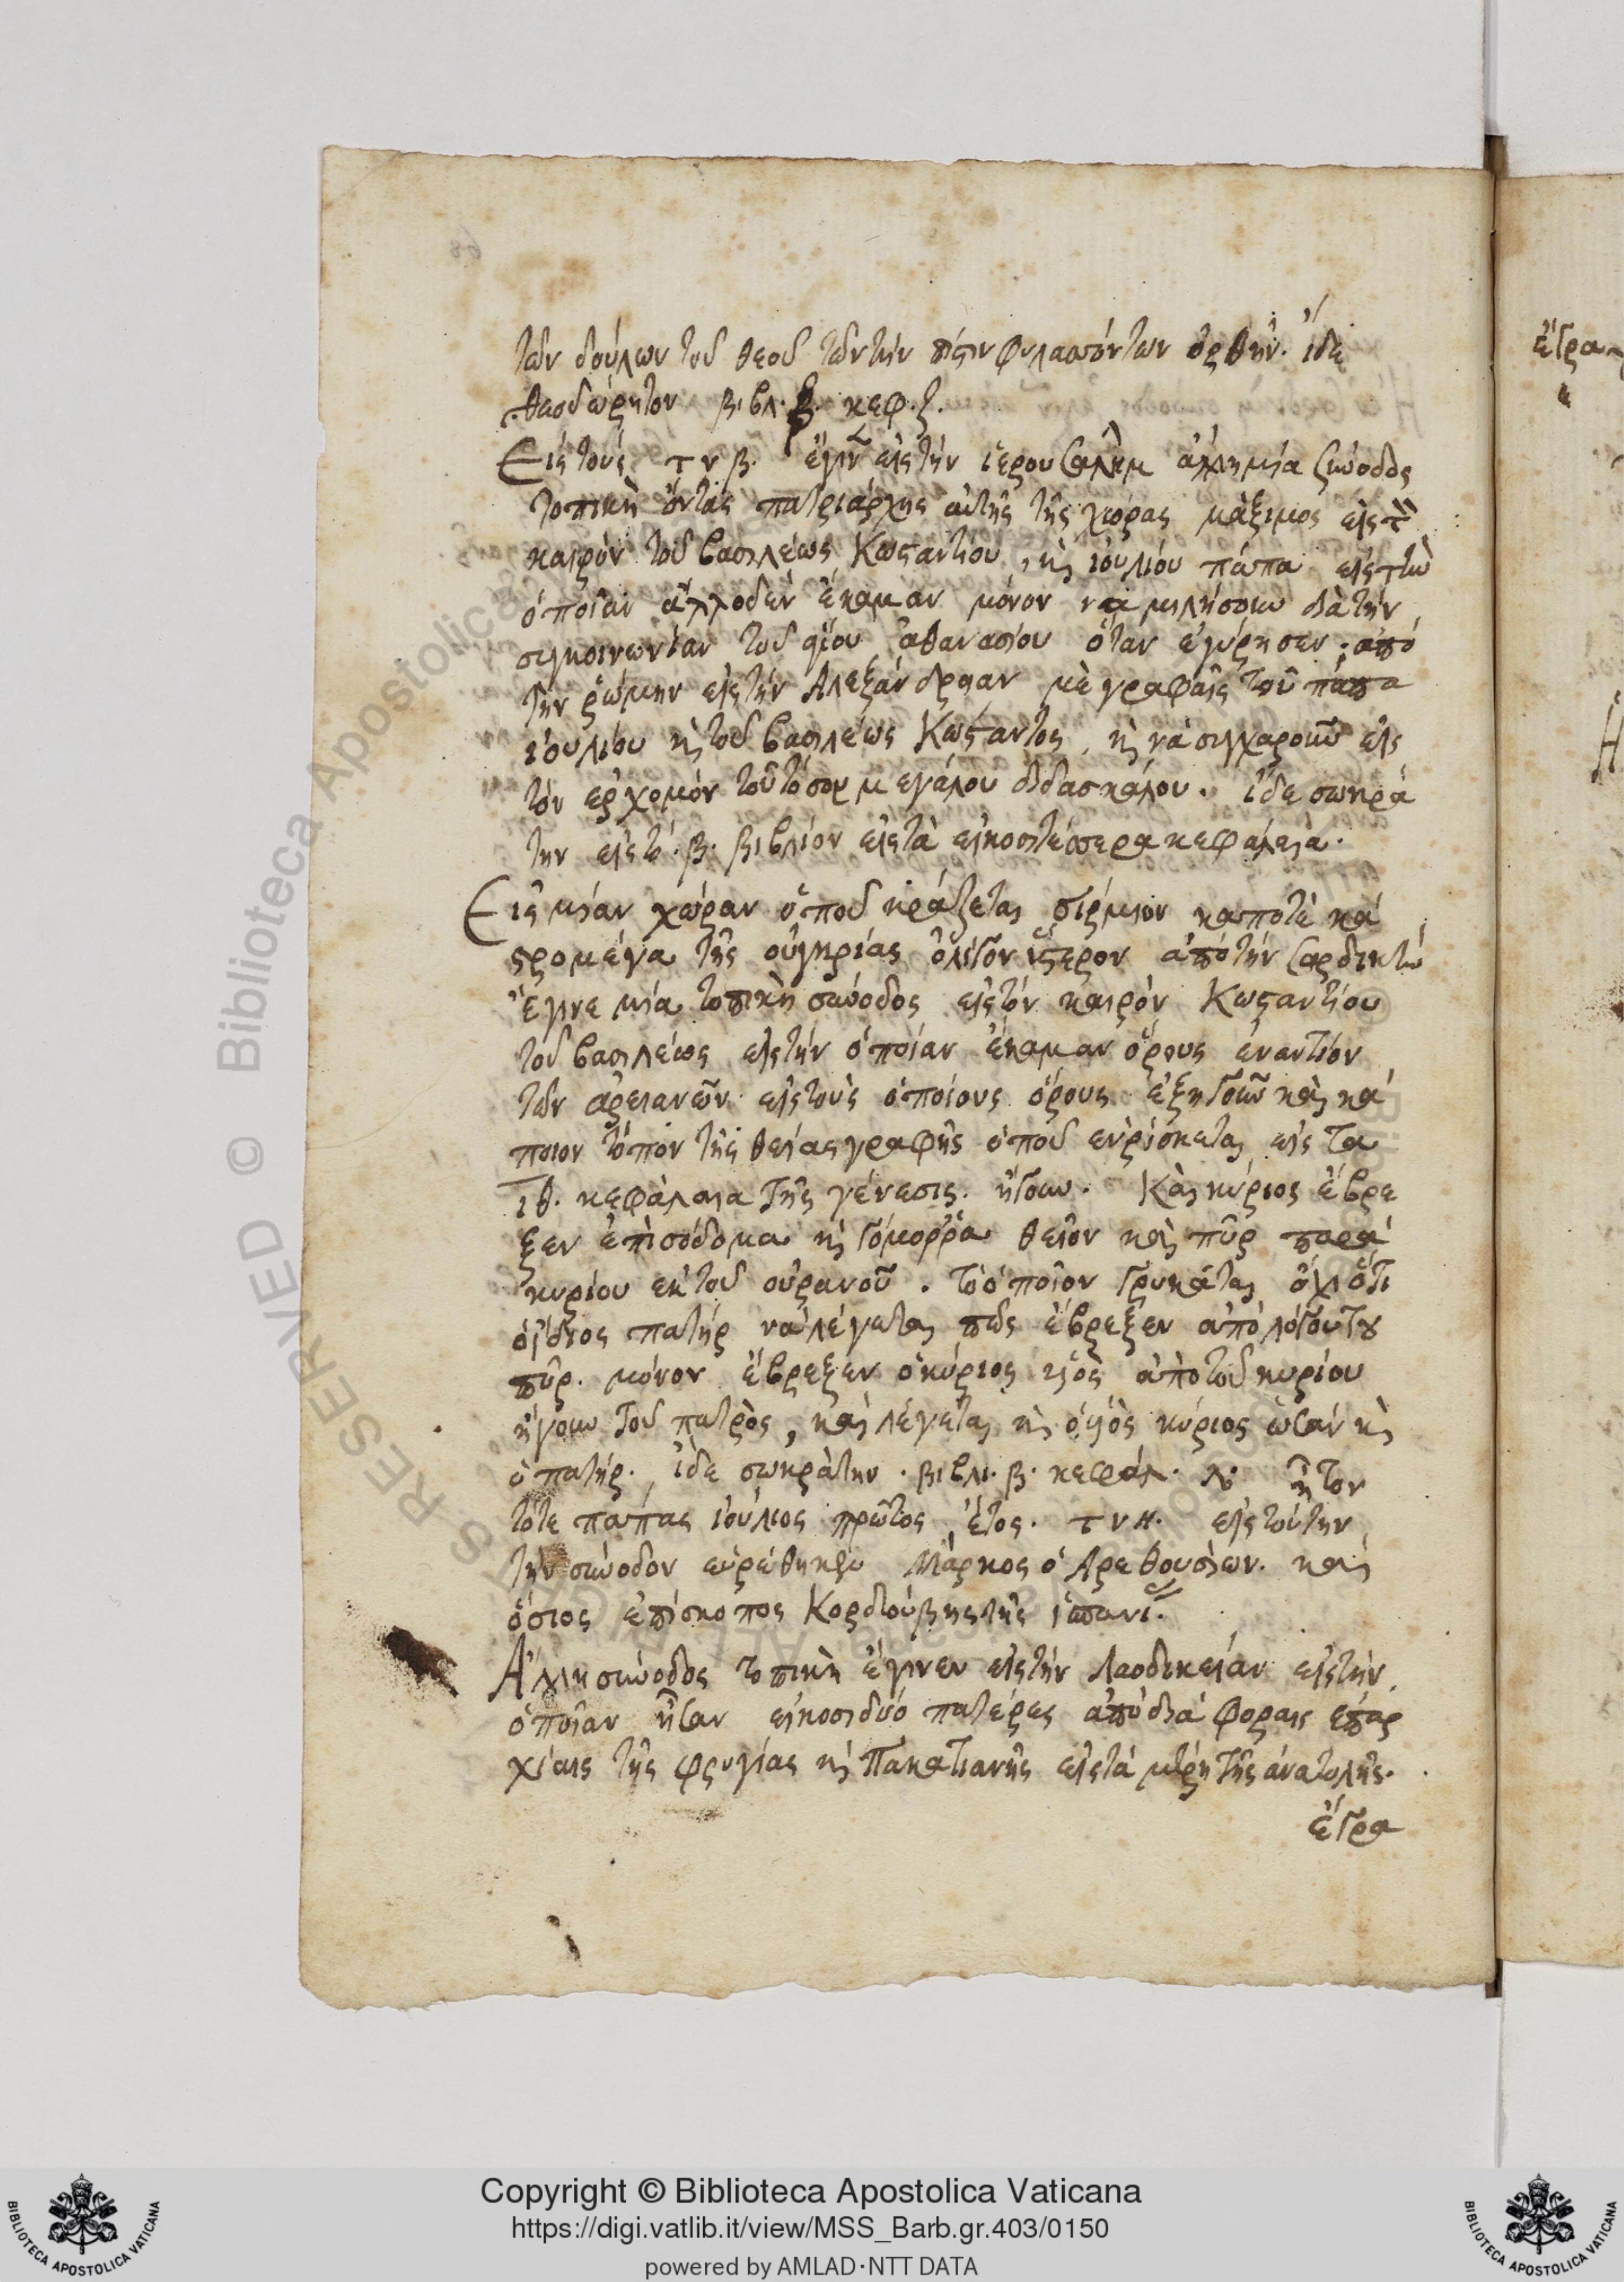 τῶν δούλων τοῦ θεοῦ τῶν τὴν πίστιν φυλασσόντων ὀρθήν. ἴδε
θεοδώρητον βιβλ. β. κεφ. ζ.
Εἰς τοὺς τνβ. ἔγιν εἰς τὴν ἱερουσαλὴμ ἄλλη μία σύνοδος
τοπικὴ ὄντας πατριάρχης αὐτῆς τῆς χώρας μάξιμος εἰς τὸν
καιρὸν τοῦ βασιλέως Κωσταντίου, κὶ ἰουλίου πάπα εἰς τὴν
ὁποῖαν ἄλλο δὲν ἔκαμαν μόνον νὰ μιλήσουν διὰ τὴν
συγκοινωνίαν τοῦ ἁγίου ἀθανασίου ὅταν ἐγύρησεν ἀπὸ
τὴν ῥώμην εἰς τὴν Ἀλεξάνδρειαν μὲ γραφαῖς τοῦ πάπα
ἰουλίου κὶ τοῦ βασιλέως Κώσταντος, κὶ νὰ συγχαροῦν εἰς
τὸν ἐρχομὸν τοῦ τόσου μεγάλου διδασκάλου. ἴδε σωκρά
την εἰς τὸ β. βιβλίον εἰς τὰ εἰκοσιτέσσερα κεφάλαια.
Εἰς μίαν χώραν ὁποῦ κράζεται σίρμιον καποτὲ κά
στρο μέγα τῆς οὐγκρίας ὀλίγον ὕστερον ἀπὸ τὴν σαρδικὴν
ἔγινε μία τοπικὴ σύνοδος εἰς τὸν καιρὸν Κωσταντίου
τοῦ βασιλέως εἰς τὴν ὁποίαν ἔκαμαν ὅρους ἐναντίον
τῶν ἀρειανῶν εἰς τοὺς ὁποίους ὅρους ἐξηγοῦν καὶ κά
ποιον τόπον τῆς θείας γραφῆς ὁποῦ εὑρίσκεται εἰς τα
ιθ. κεφάλαια τῆς γένεσις. ἤγουν. Καὶ κύριος ἔβρε
ξεν ἐπὶ σόδομα κὶ γόμορρα θεῖον καὶ πῦρ παρὰ
κυρίου ἐκ τοῦ οὐρανοῦ. τὸ ὁποῖον γρυκάται ὄχι ὅτι
ὁ ἴδιος πατὴρ νὰ λέγεται πῶς ἔβρεξεν ἀπὸ λόγου του
πῦρ. μόνον ἔβρεξεν ὁ κύριος υἱὸς ἀπὸ τοῦ κυρίου
ἤγουν τοῦ πατρὸς, καὶ λέγεται κὶ ὁ υἱὸς κύριος ὡσὰν κὶ
ὁ πατήρ. ἴδε σωκράτην. βιβλι. β. κεφάλ. λ. ἦτον
τότε πάπας ἰούλιος πρῶτος, ἔτος. τνη. εἰς τούτην
τὴν σύνοδον εὑρέθηκεν Μάρκος ὁ Ἀρεθουσίων. καὶ
ὅσιος ἐπίσκοπος Κορδιούβης τῆς ἱσπανί.
Ἄλλη σύνοδος τοπικὴ ἔγινεν εἰς τὴν Λαοδικείαν εἰς τὴν
ὁποῖαν ἦσαν εἰκοσιδύο πατέρες ἀπὸ διάφοραις ἐπαρ
χίαις τῆς φρυγίας κὶ Πακατιανῆς εἰς τὰ μέρη τῆς ἀνατολῆς.
ἔγρα
ἔγρα
Copyright © Biblioteca Apostolica Vaticana
https://digi.vatlib.it/view/MSS_Barb.gr.403/0150
powered by AMLAD·NTT DATA